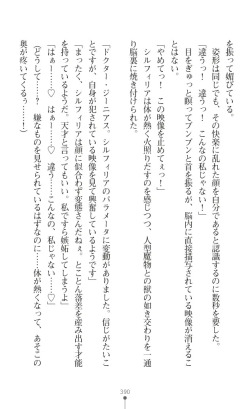 を振って媚びている。
　姿形は同じでも、その快楽に乱れた顔を自分であると認識するのに数秒を要した。
「違うっ！　違うっ！　こんなの私じゃない！」
　目をぎゅっと瞑ってブンブンと首を振るが、脳内に直接描写されている映像が消えるこ
とはない。
「やめてっ！　この映像を止めてぇっ！」
　シルフィリアは体が熱く火照りだすのを感じつつ、人型魔物との獣の如き交わりを一通
り脳裏に焼き付けられた。
「ドクター・ジーニアス。シルフィリアのパラメータに変動がありました。信じがたいこ
とですが、自身が犯されている映像を見て興奮しているようです」
「まったく、シルフィリアは顔に似合わず変態さんだねぇ。とことん落差を産み出す才能
を持っているようだ。天才と言ってもいい。私ですら嫉妬してしまうよ」
「はぁー……♡　はぁー……♡　違う……こんなの、私じゃない……♡」
（どうして……？　嫌なものを見せられているはずなのに……！　体が熱くなって、あそこの
奥が疼いてくるぅ……！）
390